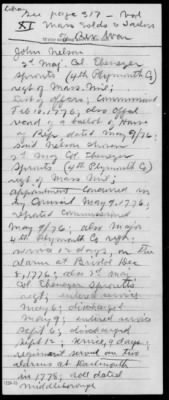 See page 317 - Vol
XI Mass Solds & Sailors
John Nelson
2d Maj. Col. Ebenezer
Sprouts (4th Plymouth Co)
regt of Mass. Mil;
List of officers; Commissioned
Feb 1776; also
in a ballot of House
of Rep. dated May 9/76;
Said Nelson chosen
2d Maj Col Ebenezer
Sprouts (4th Plymouth Co)
regt of Mass. Mil;
appointment concurred in
by Council May 9, 1776;
reported commissioned
May 9/76; also Major
4th Plymouth Co regt;
service 12 days, on the
alarm at Bristol Dec
8, 1776; also 2d Maj
Col Ebenezer Sproutts
regt; entered service
May 6; discharged
May 9; entered service
Sept 6; discharged
Sept 12; service, 9 days;
regiment served on two
alarms at Dartmouth
in 1778; roll dated
Middleborough